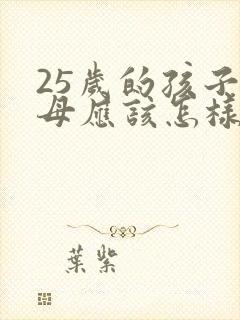 25歲的孩子
母應該怎樣
葉紫